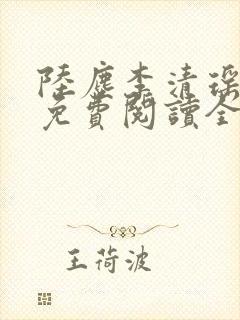 陸塵李清瑤
免費閱讀全
王荷波